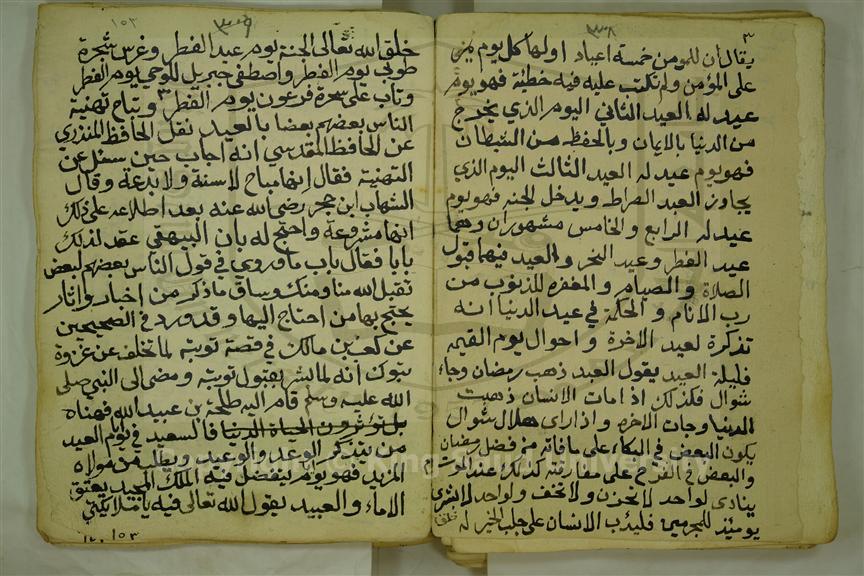 ٣
٣٣٨
يقال ان للمومن خمسة اعياد اولها كل يوم يمر
على المؤمن ولم تكتب عليه فيه خطيئة فهو يوم
عيد له العيد الثاني اليوم الذي يخرج
من الدنيا بالايمان وبالحفظ من الشيطان
فهو يوم عيد له العيد الثالث اليوم الذي
يجاوز العبد الصراط ويدخل الجنة فهو يوم
عيد له الرابع والخامس مشهوران وهما
عيد الفطر وعيد النحر والعيد فيها قبول
الصلاة والصيام والمغفره للذنوب من
رب الانام و الحكمة في عيد الدنيا انه
تذكرة لعيد الاخرة و احوال يوم القيمه
فليلة العيد يقول العبد ذهب رمضان وجاء
شوال فكذلك اذا مات الانسان ذهبت
الدنيا وجات الاخره و اذا راى هلال شوال
يكون البعض في البكاء على ما فاته من فضل رمضان
والبعض في الفرح على مفارقته كذلك عند الموت
ينادى لواحد لا تحزن ولا تخف ولواحد لا بشرى
يومئذ للمجرمين فليدٔب الانسان على جلب الخير له
خلق
٣٣٩
١٥٣
خلق الله تعالى الجنة يوم عيد الفطر وغرس شجرة
طوبى يوم الفطر واصطفى جبريل للوحي يوم الفطر
وتاب على سحرة فرعون يوم الفطر و يتاح تهنية
الناس بعضهم بعضا بالعيد نقل الحافظ المنذرى
عن الحافظ المقدسي انه اجاب حين سئل عن
التهنية فقال انها مباح لا سنة ولا بدعة وقال
الشهاب ابن حجر رضى الله عنه بعد اطلاعه على ذلك
انها مشروعة واحتج له بان البيهقي عقد لذلك
بابا فقال باب ما روي في قول الناس بعضهم لبعض
تقبل الله منا ومنك وساق ما ذكر من اخبار واثار
يحتج بها من احتاج اليها و قد ورد في الصحيحين
عن كعب بن مالك في قصة توبته لما تخلف عن غزوة
تبوك انه لما بشر بقبول توبته ومضى الى النبي صلى
الله عليه وسلم قام اليه طلحة بن عبيد الله فهناه
بل تؤثرون الحياة الدنيا فالسعيد في يوم العيد
من يتذكر الوعد والوعيد ويطلب من مولاه
المزيد فهو يوم ليتفضل فيه الملك المجيد بعتق
الاماء والعبيد يقول الله تعالى فيه يا ملايكتي
١٥٣